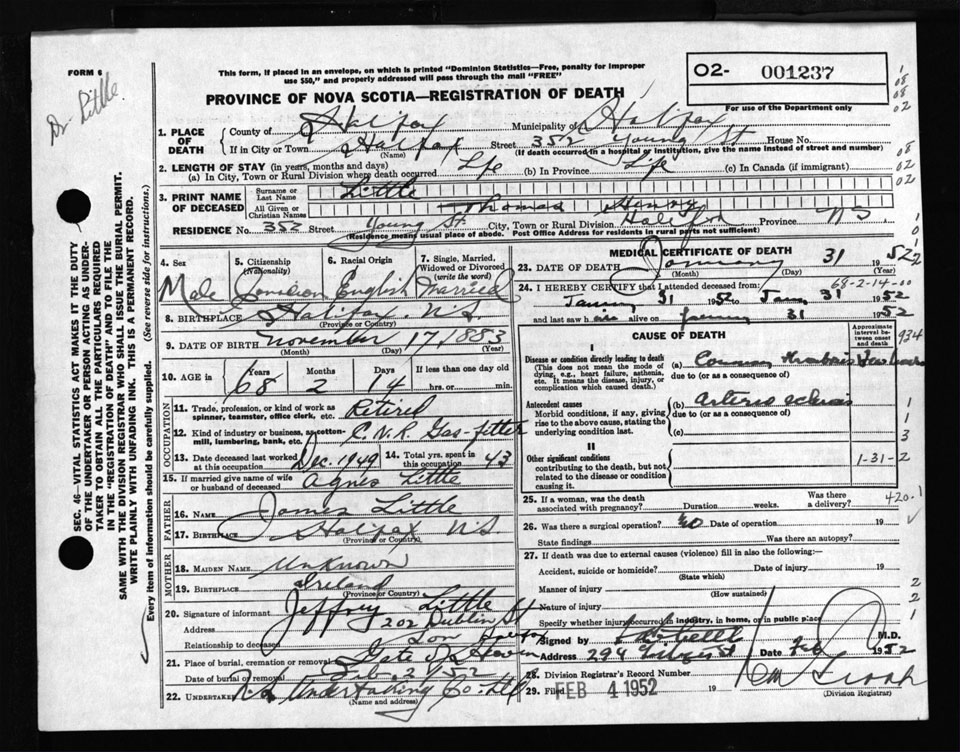 FORM 6
This form, if placed in an envelope, on which is printed "Dominion Statistics—Free, penalty for improper
use $50," and properly addressed will pass through the mail "FREE"
O2- 001237
PROVINCE OF NOVA SCOTIA—REGISTRATION OF DEATH
For use of the Department only
Dr. Little.
1. PLACE OF DEATH
County of Halifax Municipality of Halifax
If in City or Town Halifax (Name) Street 352 Young St House No.
(If death occurred in a hospital or institution, give the name instead of street and number)
2. LENGTH OF STAY (in years, months and days)
(a) In City, Town or Rural Division where death occurred Life (b) In Province Life (c) In Canada (if immigrant)
3. PRINT NAME OF DECEASED
Surname or Last Name Little
All Given or Christian Names Thomas Henry
RESIDENCE No. 352 Street Young St City, Town or Rural Division Halifax Province N S
(Residence means usual place of abode. Post Office Address for residents in rural parts not sufficient)
4. Sex Male
5. Citizenship (Nationality) Canadian
6. Racial Origin English
7. Single, Married, Widowed or Divorced (write the word) Married
8. BIRTHPLACE Halifax N.S.
(Province or Country)
9. DATE OF BIRTH November 17, 1883
(Month) (Day) (Year)
10. AGE in Years 68 Months 2 Days 14 If less than one day old
hrs. or min.
OCCUPATION
11. Trade, profession, or kind of work as spinner, teamster, office clerk, etc. Retired
12. Kind of industry or business, as cotton-mill, lumbering, bank, etc. C.N.R. Gas-fitter
13. Date deceased last worked at this occupation Dec. 1949 14. Total yrs. spent in this occupation 43
15. If married give name of wife or husband of deceased Agnes Little
FATHER
16. Name James Little
17. Birthplace Halifax N.S.
(Province or Country)
MOTHER
18. MAIDEN NAME Unknown
19. BIRTHPLACE Ireland
(Province or Country)
20. Signature of informant Jeffrey Little
Address 202 Dublin St
Relationship to deceased Son
21. Place of burial, cremation or removal Gate of Heaven
Date of burial or removal Feb. 2/52
22. Undertaker N.S. Undertaking Co. Ltd
(Name and address)
MEDICAL CERTIFICATE OF DEATH
23. DATE OF DEATH January 31 1952
(Month) (Day) (Year)
68-2-14-00
24. I HEREBY CERTIFY that I attended deceased from:
31 1952 to Jan 31 1952
and last saw h alive on 31 1952
CAUSE OF DEATH
Approximate interval between onset and death
934
I
Disease or condition directly leading to death
(This does not mean the mode of dying, e.g., heart failure, asthenia, etc. It means the disease, injury, or complication which caused death.)
(a) Coronary thrombosis Few hours
due to (or as a consequence of)
Antecedent causes
Morbid conditions, if any, giving rise to the above cause, stating the underlying condition last.
(b) arterio sclerosis
due to (or as a consequence of)
(c)
II
Other significant conditions
contributing to the death, but not related to the disease or condition causing it.
1-31-2
25. If a woman, was the death associated with pregnancy? Duration weeks. Was there a delivery? 420.1
26. Was there a surgical operation? no Date of operation 19
State findings Was there an autopsy?
27. If death was due to external causes (violence) fill in also the following:—
Accident, suicide or homicide? Date of injury 19
(State which)
Manner of injury
(How sustained)
Nature of injury
Specify whether injury occurred in industry, in home, or in public place
Signed by M.D.
Address 294 Date Feb 1952
28. Division Registrar's Record Number
29. Filed FEB 4 1952 19
(Division Registrar)
SEC. 46—VITAL STATISTICS ACT MAKES IT THE DUTY
OF THE UNDERTAKER OR PERSON ACTING AS UNDER-
TAKER TO OBTAIN ALL THE PARTICULARS REQUIRED
IN THE "REGISTRATION OF DEATH" AND TO FILE THE
SAME WITH THE DIVISION REGISTRAR WHO SHALL ISSUE THE BURIAL PERMIT.
WRITE PLAINLY WITH UNFADING INK. THIS IS A PERMANENT RECORD.
Every item of information should be carefully supplied. (See reverse side for instructions.)